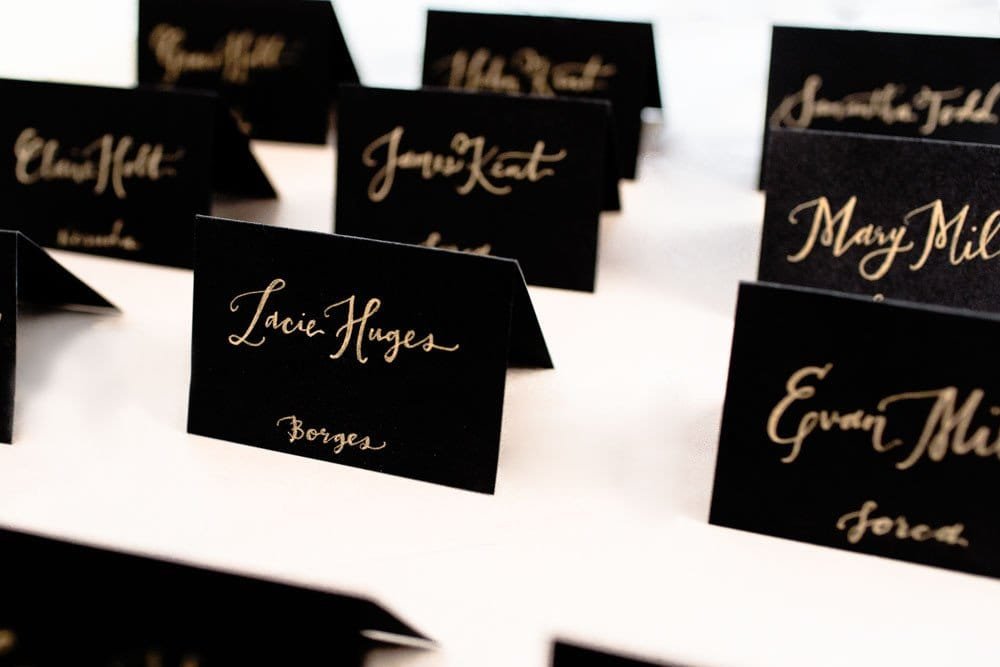 Holt
Kent
Samantha Todd
Claire Holt
James Kent
Mary Mil
Lacie Huges
Borges
Evan Mi
Sored